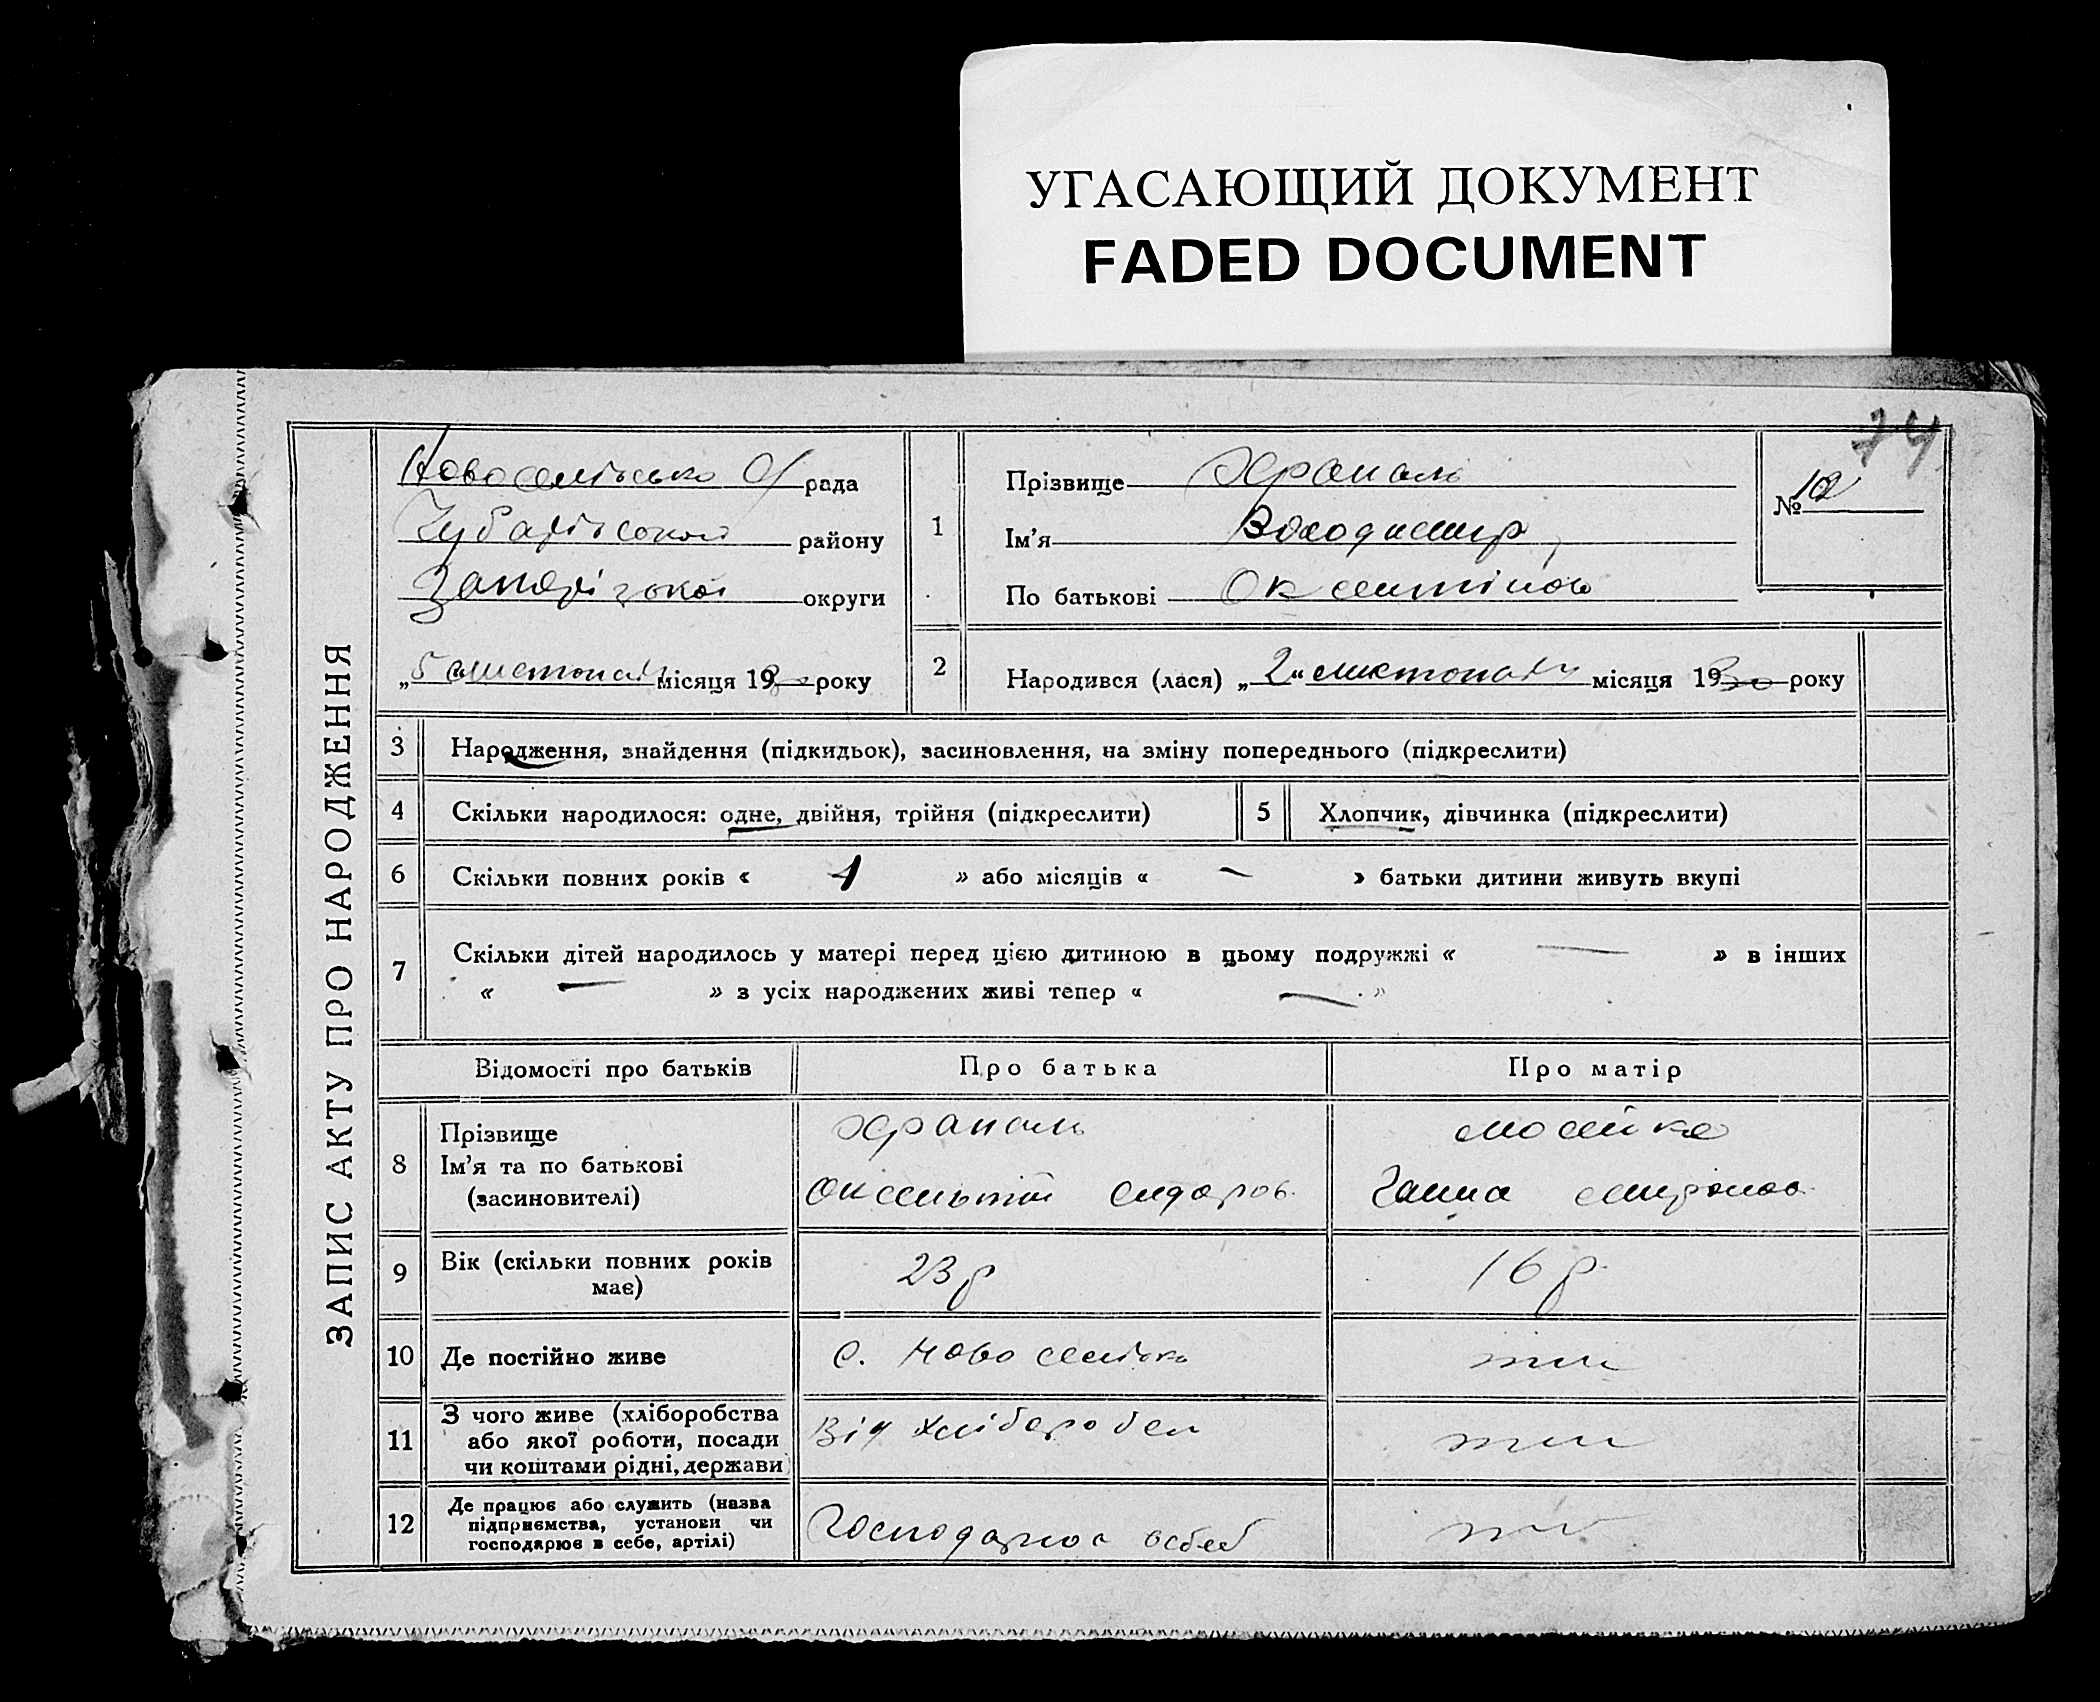 УГАСАЮЩИЙ ДОКУМЕНТ
FADED DOCUMENT
74
ЗАПИС АКТУ ПРО НАРОДЖЕННЯ
Новосельська с/рада
Чубарівської району
Запорізької округи
„5“ листопад місяця 1930 року
1
Прізвище Храпаль
Ім'я Володимир
По батькові Оксентійов
№ 12
2
Народився (лася) „2“ листопаду місяця 1930 року
3 Народження, знайдення (підкидьок), засиновлення, на зміну попереднього (підкреслити)
4 Скільки народилося: одне, двійня, трійня (підкреслити)
5 Хлопчик, дівчинка (підкреслити)
6 Скільки повних років « 1 » або місяців « — » батьки дитини живуть вкупі
7 Скільки дітей народилось у матері перед цією дитиною в цьому подружжі « — » в інших
« — » з усіх народжених живі тепер « — »
Відомості про батьків Про батька Про матір
8 Прізвище
Ім'я та по батькові
(засиновителі)
Храпаль
Оксентій Сидоров.
Мосейко
Ганна Миронов
9 Вік (скільки повних років
має)
23 р
16 р
10 Де постійно живе
с. Новоселівка
тии
11 З чого живе (хліборобства
або якої роботи, посади
чи коштами рідні, держави
Від хлібороб
тии
12 Де працює або служить (назва
підприємства, установи чи
господарює в себе, артілі)
Господарює в себе